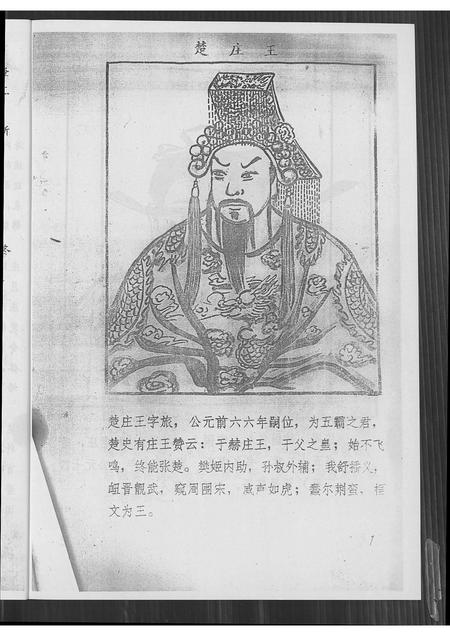 楚庄王
楚庄王字旅，公元前六六年嗣位，为五霸之君，
楚史有庄王赞云：于赫庄王，干父之皇；始不飞
鸣，终能张楚。樊姬内助，孙叔外辅；我舒播义，
衄晋觀武，窥周围宋，威声如虎；蠢尔荆蛮，桓
文为王。
1